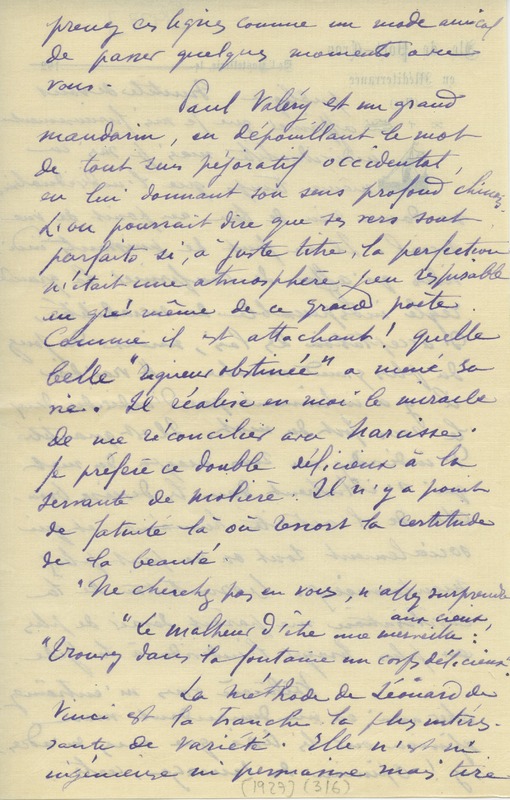 prenez ces lignes comme un mode amical
de passer quelques moments avec
vous.
Paul Valéry est un grand
mandarin, en dépouillant le mot
de tout sens péjoratif occidental,
en lui donnant son sens profond, chinois.
L'on pourrait dire que ses vers sont
parfaits si, à juste titre, la perfection
n'était une atmosphère peu respirable
en gré même de ce grand poète.
Comme il est attachant! quelle
belle "rigueur obstinée" a mené sa
vie. Il réalise en moi le miracle
de me réconcilier avec Narcisse.
Je préfère ce double délicieux à la
servante de Molière. Il n'y a point
de fatuité là où ressort la certitude
de la beauté.
"Ne cherchez pas en vous, n'allez surprendre
aux cieux,
"Le malheur d'être une merveille:
"Trouvez dans la fontaine un corps délicieux"
La méthode de Léonard de
Vinci est la tranche la plus intéres-
sante de variété. Elle n'est ni
ingénieuse ni permissive mais tire
(1927) (3/6)